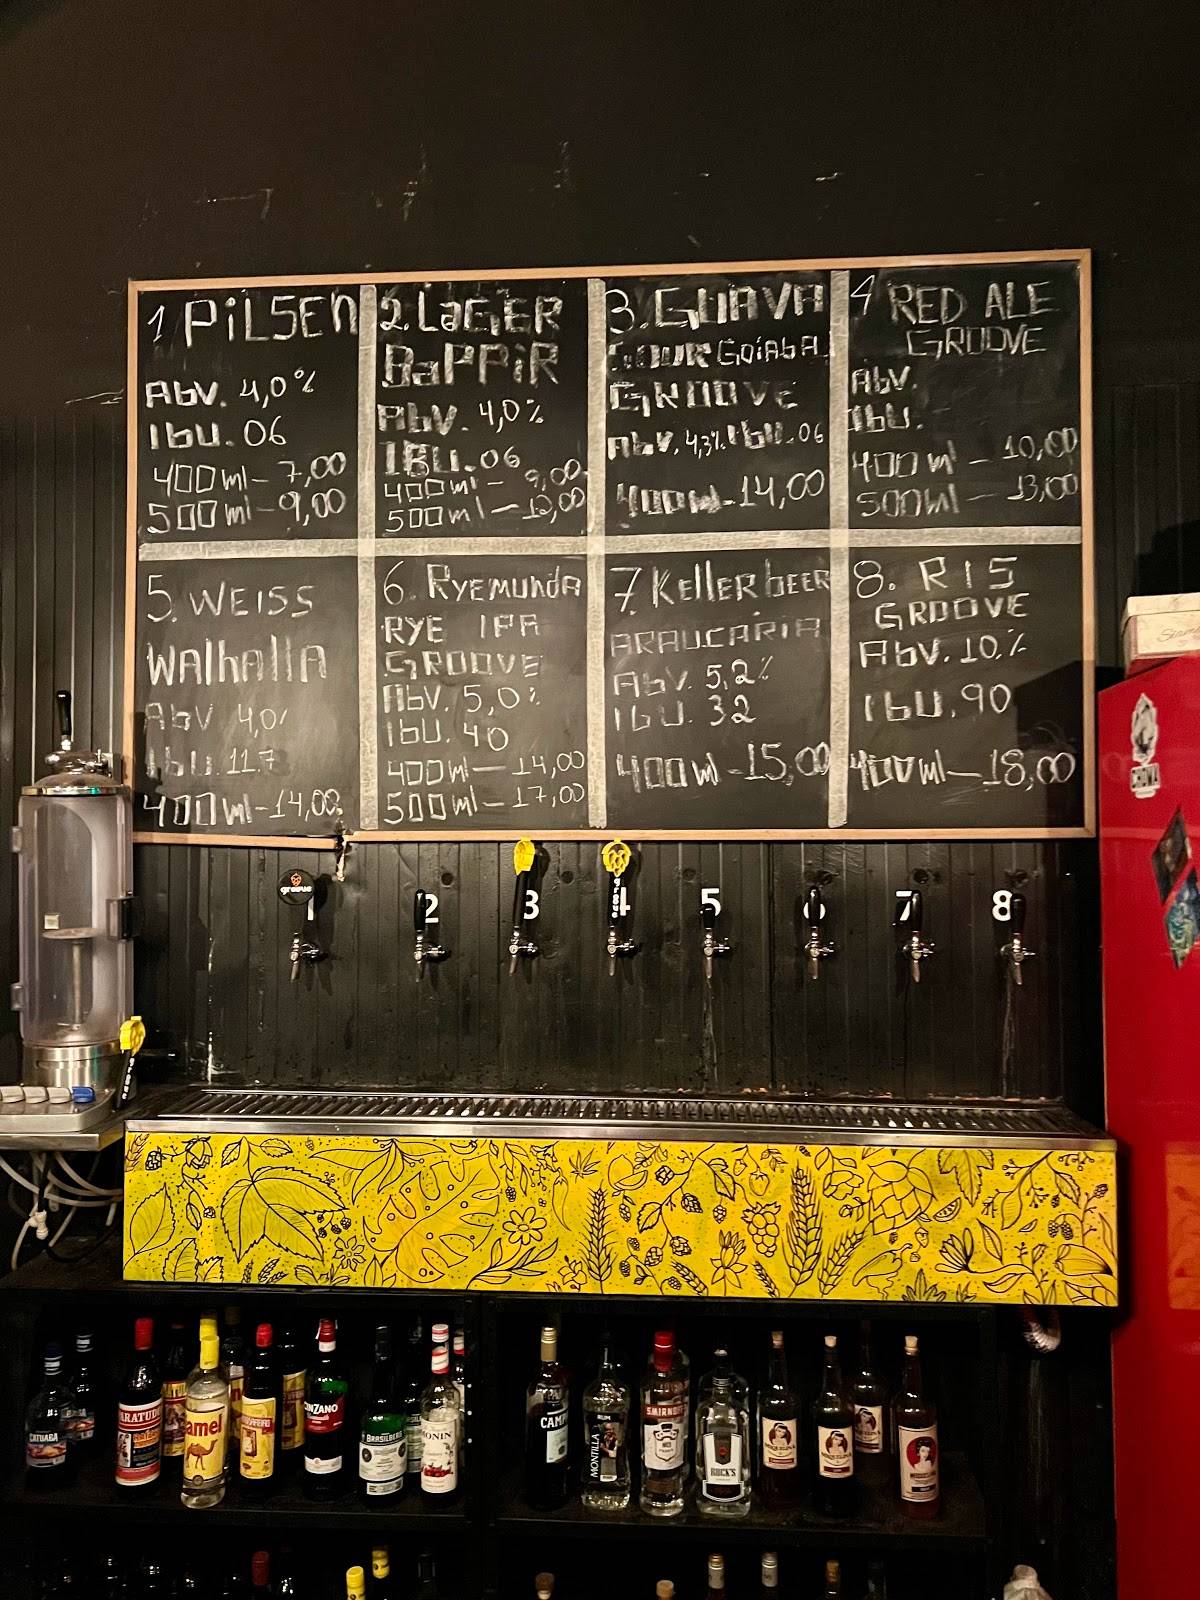 1 PiLSEN
Abv. 4,0%
Ibu. 06
400ml - 7,00
500ml - 9,00
2. LaGER
BaPPiR
Abv. 4,0%
IBU. 06
400ml - 9,00
500ml - 12,00
3. GUAVA
SOUR GoiabA
GROOVE
Abv. 4,3% Ibu. 06
400ml - 14,00
4 RED ALE
GROOVE
Abv.
Ibu.
400ml - 10,00
500ml - 13,00
5. WEISS
WAlhallA
Abv 4,0%
Ibu. 11.7
400ml - 14,00
6. RyEmundA
RYE IPA
GROOVE
Abv. 5,0%
Ibu. 40
400ml - 14,00
500ml - 17,00
7. Keller beer
ARAUCARIA
Abv. 5,2%
Ibu. 32
400ml - 15,00
8. RIS
GROOVE
Abv. 10%
Ibu. 90
400ml - 18,00
groove
1 2 3 4 5 6 7 8
groove
CATUABA
PARATUDO
Camel
CINZANO
BRASILBERG
MONIN
CAMPARI
RUM
MONTILLA
SMIRNOFF
ROCK'S